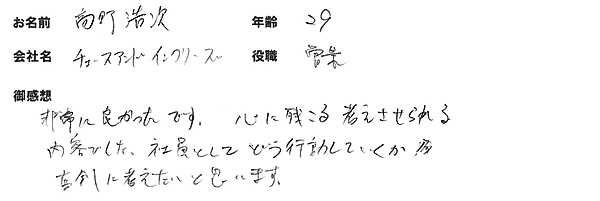 お名前 高野 浩次 年齢 29
会社名 チュースアンドイングリーズ 役職 営業
御感想
非常に良かったです。 心に残こる 考えさせられる
内容でした。社員として どう行動していくか
真剣に考えたいと思います。